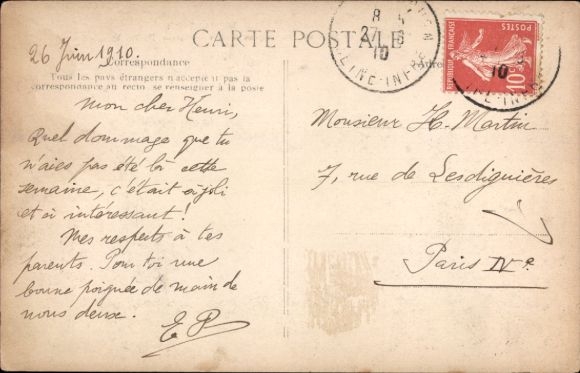 26 Juin 1910.
CARTE POSTALE
Correspondance
Tous les pays étrangers n'acceptent pas la
correspondance au recto, se renseigner à la poste
Mon cher Henri,
Quel dommage que tu
n'aies pas été là cette
semaine, c'était si joli
et si intéressant!
Mes respects à tes
parents. Pour toi une
bonne poignée de main de
nous deux.
E P
8
27
10
INE-INF
REPUBLIQUE FRANÇAISE
POSTES
10c
10
INE-INF
Monsieur H. Martin
7, rue de Lesdiguières
Paris IVe